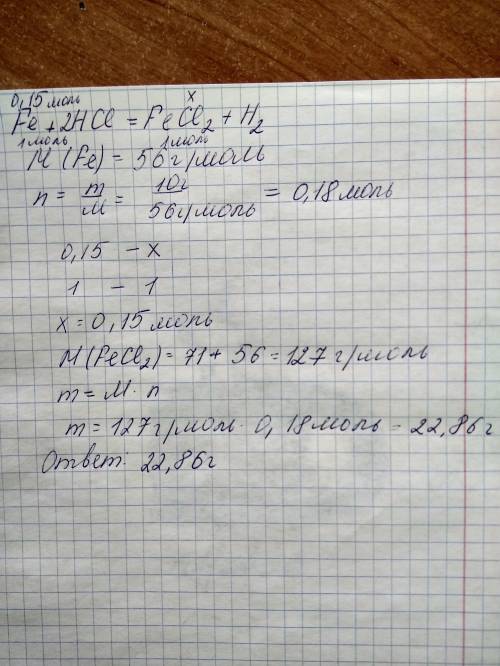 0,15 моль x
Fe + 2HCl = FeCl₂ + H₂
1 моль 1 моль
M (Fe) = 56 г/моль
n = m/M = 10г/56г/моль = 0,18 моль
0,15 - x
1 - 1
x = 0,15 моль
M(FeCl₂) = 71 + 56 = 127 г/моль
m = M · n
m = 127 г/моль · 0,18 моль = 22,86 г
Ответ: 22,86 г